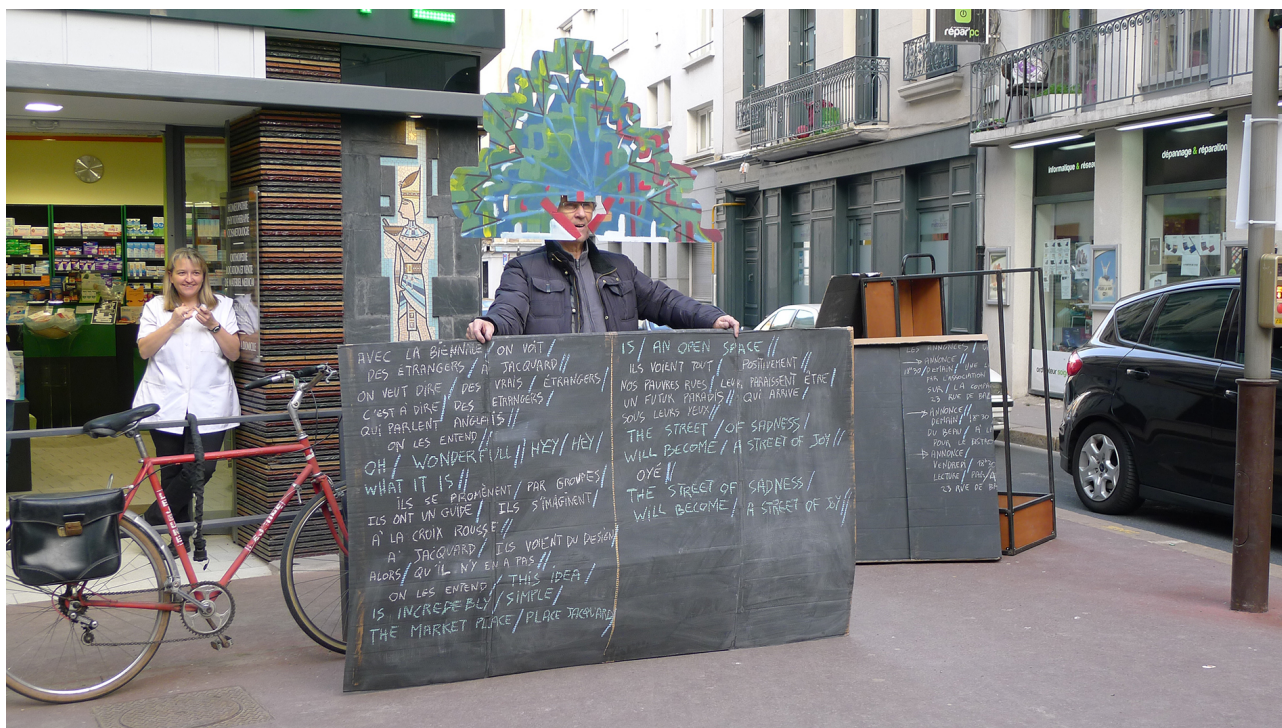 réparpc
informatique & résea
dépannage & réparation
AVEC LA BIENNALE / ON VOIT //
DES ÉTRANGERS / À JACQUARD //
ON VEUT DIRE / DES VRAIS / ÉTRANGERS /
C'EST À DIRE / DES ETRANGERS /
QUI PARLENT ANGLAIS //
ON LES ENTEND //
OH / WONDERFULL // HEY / HEY /
WHAT IT IS //
ILS SE PROMÈNENT / PAR GROUPES /
ILS ONT UN GUIDE / ILS S'IMAGINENT /
À LA CROIX ROUSSE //
À JACQUARD / ILS VOIENT DU DESIGN /
ALORS / QU'IL N'Y EN A PAS //
ON LES ENTEND / THIS IDEA /
IS INCREDEBLY / SIMPLE /
THE MARKET PLACE / PLACE JACQUARD //
IS / AN OPEN SPACE //
ILS VOIENT TOUT / POSITIVEMENT //
NOS PAUVRES RUES / LEUR PARAISSENT ÊTRE /
UN FUTUR PARADIS / QUI ARRIVE /
SOUS LEURS YEUX //
THE STREET / OF SADNESS /
WILL BECOME / A STREET OF JOY //
OYÉ //
THE STREET OF SADNESS /
WILL BECOME / A STREET OF JOY //
LES ANNONCES /
→ ANNONCE /
18'30 / DEMAIN / UNE L
PAR L'ASSOCIATION
SUR / LA COMPA
23 RUE DE BA
→ ANNONCE /
DEMAIN / 18'30
DU BEAU / À L
POUR LE DISTRIC
→ ANNONCE /
VENDREDI / 18'3
LECTURE / PAR / 
23 RUE DE B